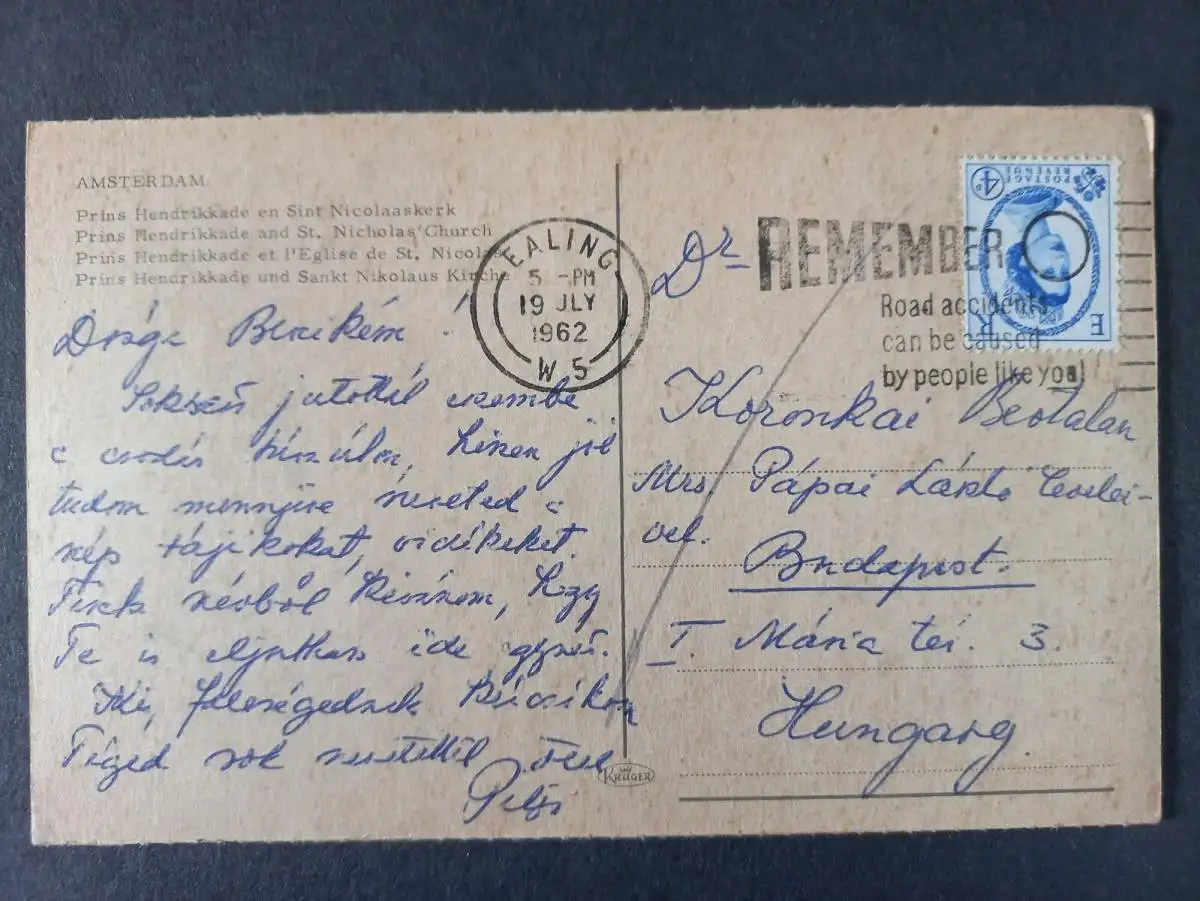 AMSTERDAM
Prins Hendrikkade en Sint Nicolaaskerk
Prins Hendrikkade and St. Nicholas' Church
Prins Hendrikkade et l'Eglise de St. Nicolas
Prins Hendrikkade und Sankt Nikolaus Kirche
Drága Bercikém!
Sokszor jutottál eszembe
a csodás, hiszen jól
tudom mennyire szereted a
szép tájakat, vidékeket.
Tiszta szívből kívánom, hogy
Te is eljuthass ide egyszer.
feleségednek
Téged sok szeretettel ölel
EALING
5 -PM
19 JLY
1962
W 5
REMEMBER
Road accidents
can be caused
by people like you!
POSTAGE
REVENUE
4D
E R
Dr
Koronkai Bertalan
Mrs. Pápai László levelei-
vel.
Budapest.
I. Mária tér. 3.
Hungary
KRÜGER